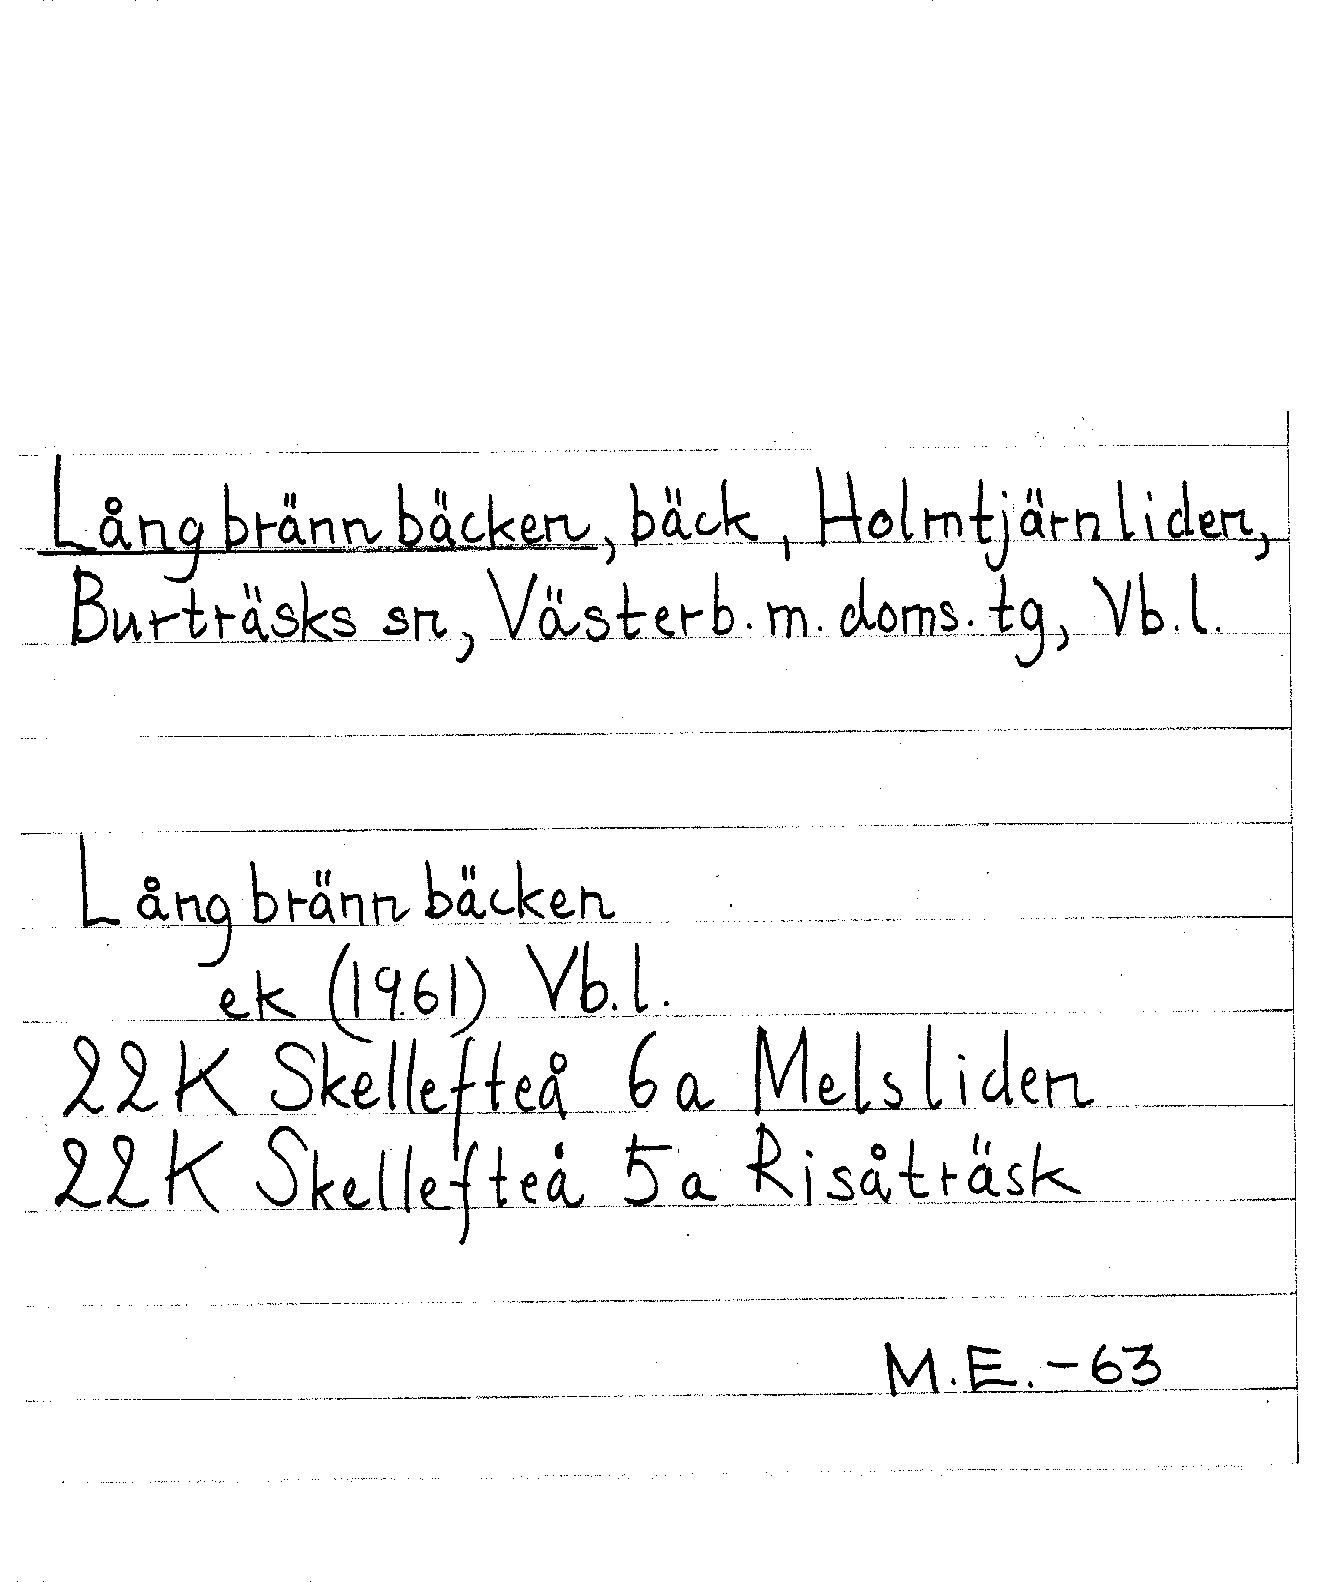 Långbrännbäcken, bäck, Holmtjärnliden,
Burträsks sn, Västerb. m. doms. tg, Vb.l.
Långbrännbäcken
ek (1961) Vb.l.
22K Skellefteå 6a Melsliden
22K Skellefteå 5a Risåträsk
M.E. -63